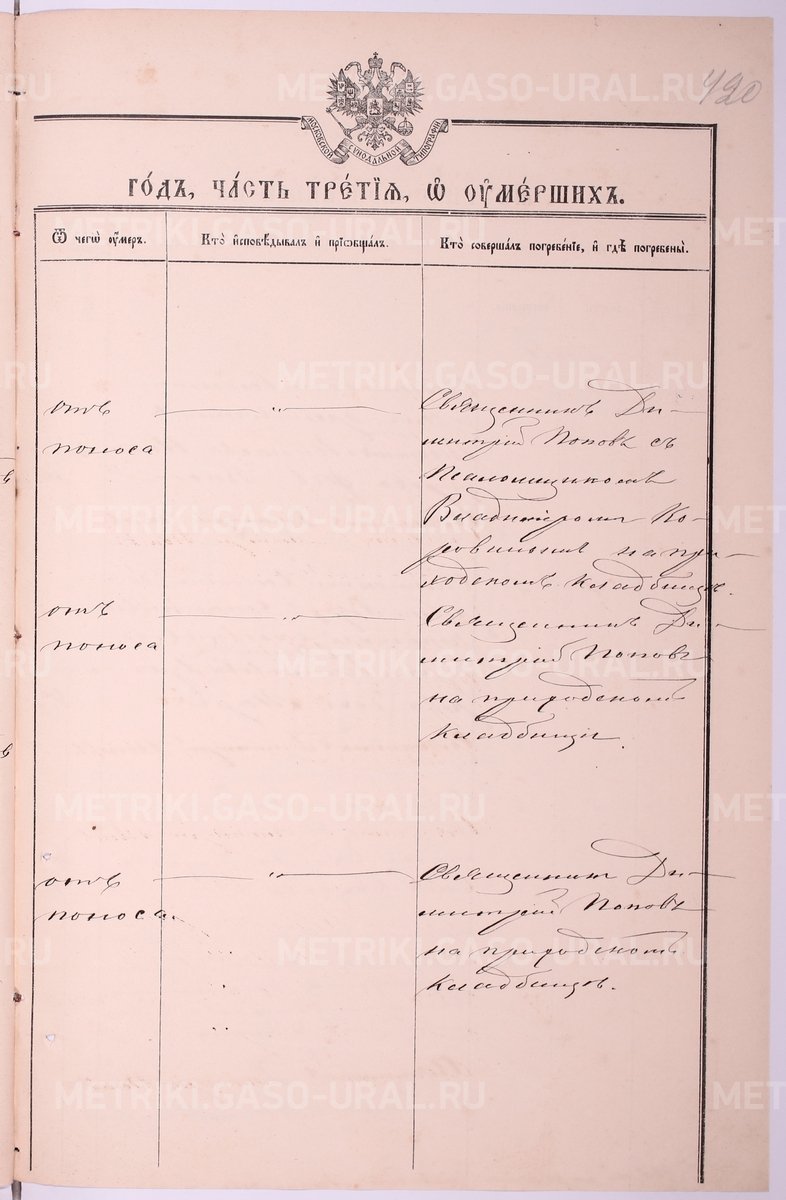 420
МОСКОВСКОЙ СѴНОДАЛЬНОЙ ТИПОГРАФІИ
ГО́ДЪ, ЧА́СТЬ ТРЕ́ТІѦ, Ѡ҆ ОУ҆МЕ́РШИХЪ.
Ѿ чегѡ̀ оу҆́меръ.
Кто̀ и҆сповѣ́дывалъ и҆ прїѡбща́лъ.
Кто̀ соверша́лъ погребе́нїе, и҆ гдѣ̀ погребены̀.
отъ
поноса
Священникъ Ди-
митрій Поповъ съ
Псаломщикомъ
Владимиромъ Ко-
ровинымъ на при-
ходскомъ кладбищѣ.
отъ
поноса
Священникъ Ди-
митрій Поповъ
на приходскомъ
кладбищѣ.
отъ
поноса.
Священникъ Ди-
митрій Поповъ
на приходскомъ
кладбищѣ.
METRIKI.GASO-URAL.RU